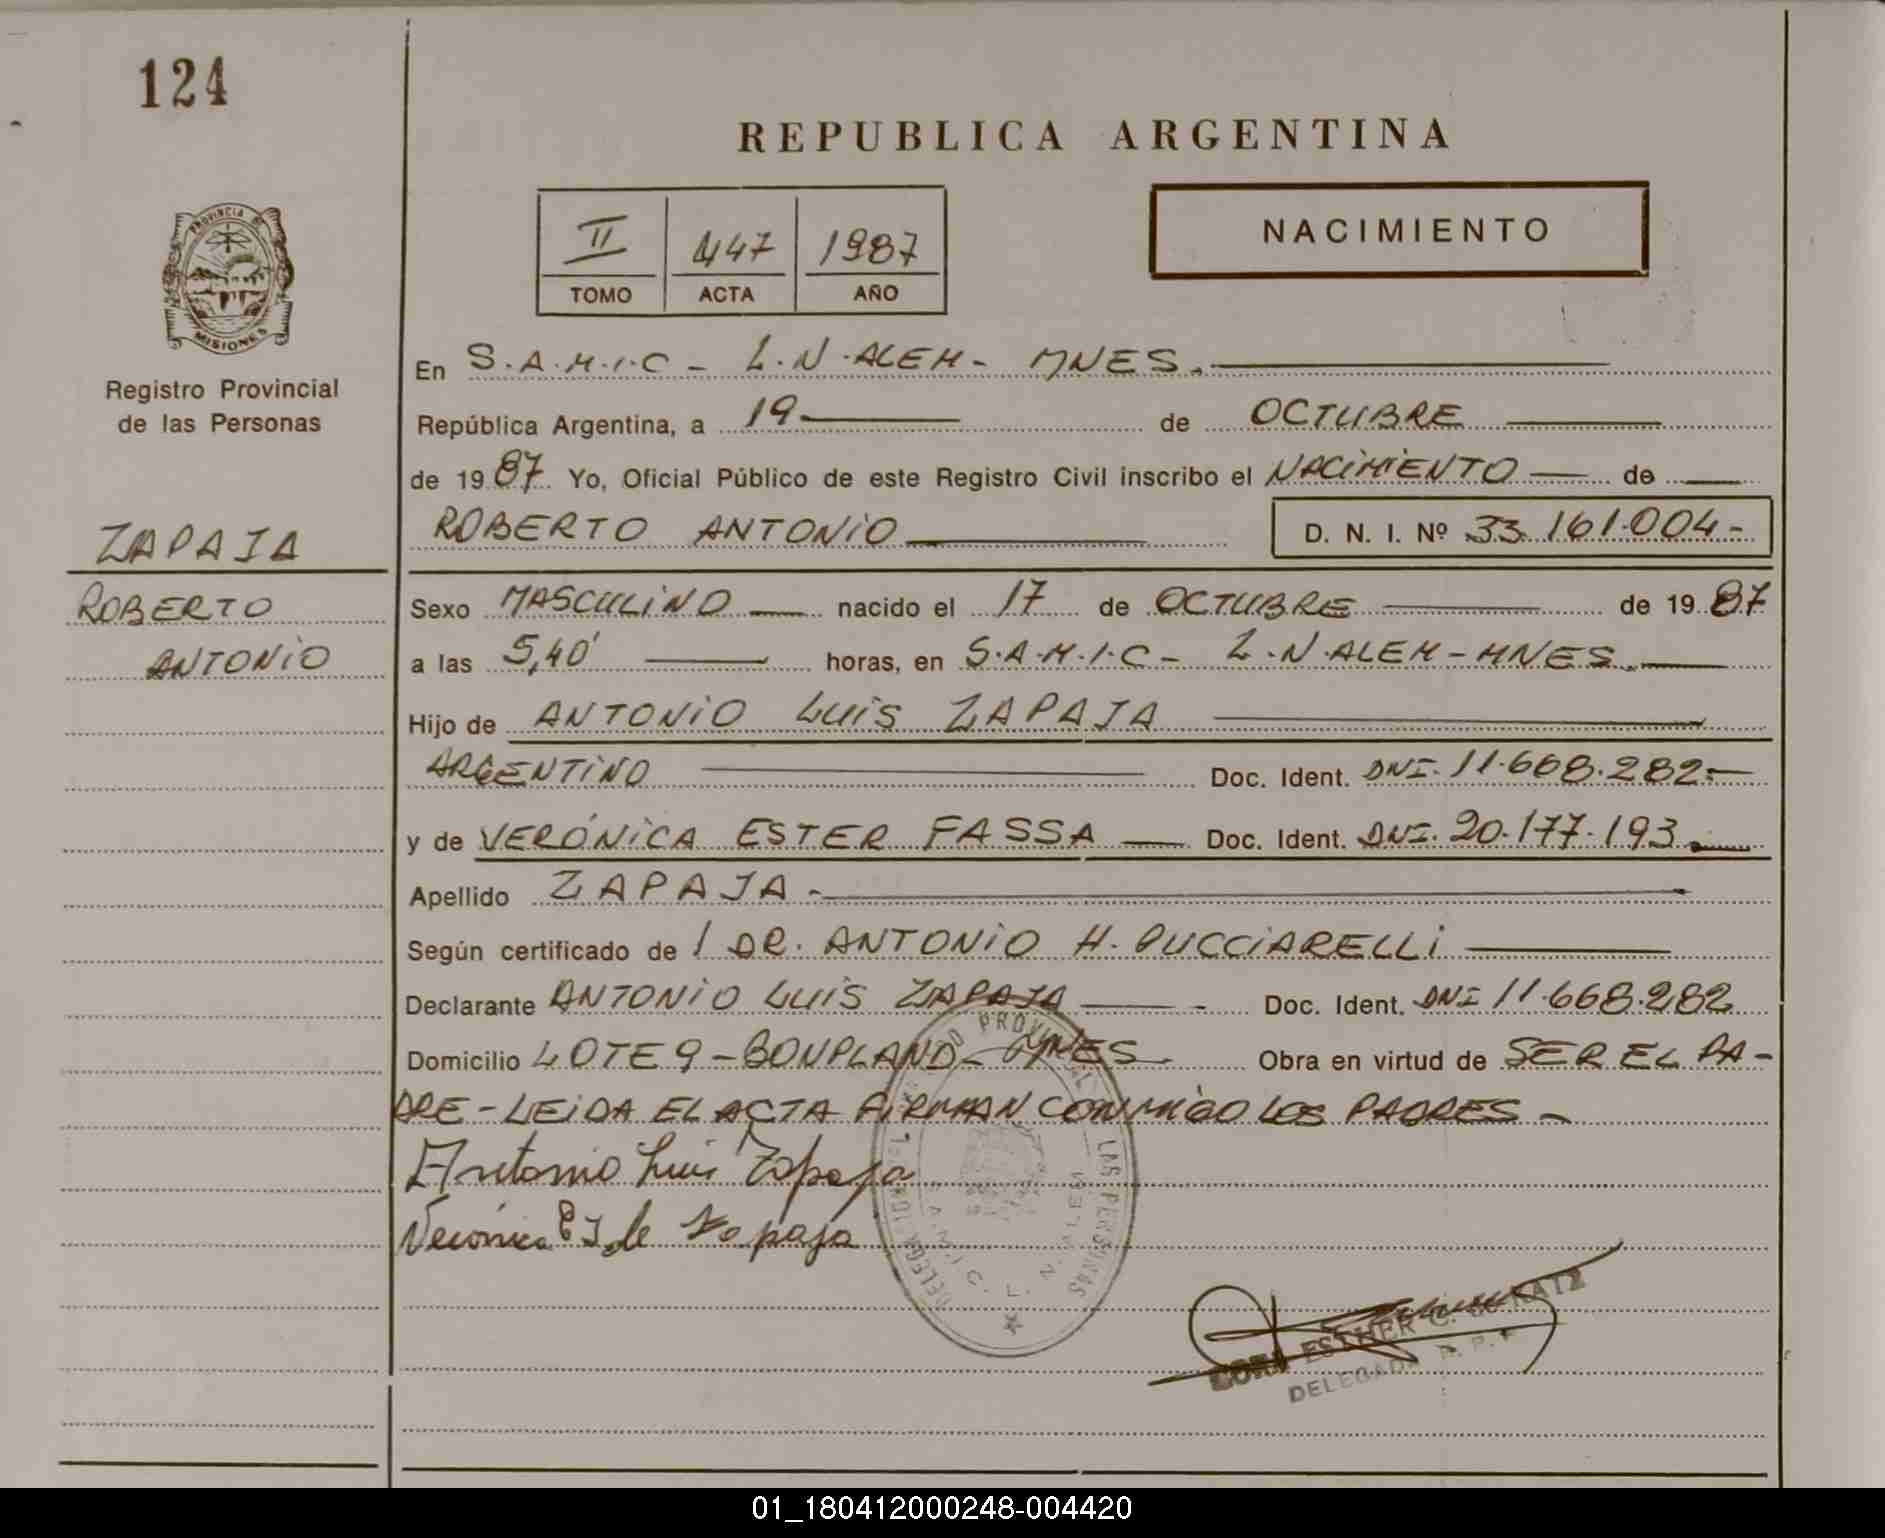 124
REPUBLICA ARGENTINA
PROVINCIA DE
MISIONES
Registro Provincial
de las Personas
II 447 1987
TOMO ACTA AÑO
NACIMIENTO
En S.A.M.I.C - L.N.ALEM - MNES.
República Argentina, a 19 de OCTUBRE
de 1987. Yo, Oficial Público de este Registro Civil inscribo el NACIMIENTO de
ROBERTO ANTONIO D. N. I. Nº 33.161.004-
ZAPAJA
ROBERTO
ANTONIO
Sexo MASCULINO nacido el 17 de OCTUBRE de 1987
a las 5,40' horas, en S.A.M.I.C - L.N.ALEM - MNES.
Hijo de ANTONIO LUIS ZAPAJA
ARGENTINO Doc. Ident. DNI. 11.668.282.-
y de VERÓNICA ESTER FASSA Doc. Ident. DNI. 20.177.193.
Apellido ZAPAJA.-
Según certificado de 1 DR. ANTONIO H. PUCCIARELLI
Declarante ANTONIO LUIS ZAPAJA Doc. Ident. DNI 11.668.282
Domicilio LOTE 9 - BONPLAND - MNES - Obra en virtud de SER EL PA-
DRE - LEIDA EL ACTA FIRMAN CONMIGO LOS PADRES -
Antonio Luis Zapaja
Verónica de Zapaja
PROVINCIAL LAS PERSONAS
S.A.M.I.C. L. N. ALEM
ESTHER C. de KATZ
DELEGADA
01_180412000248-004420